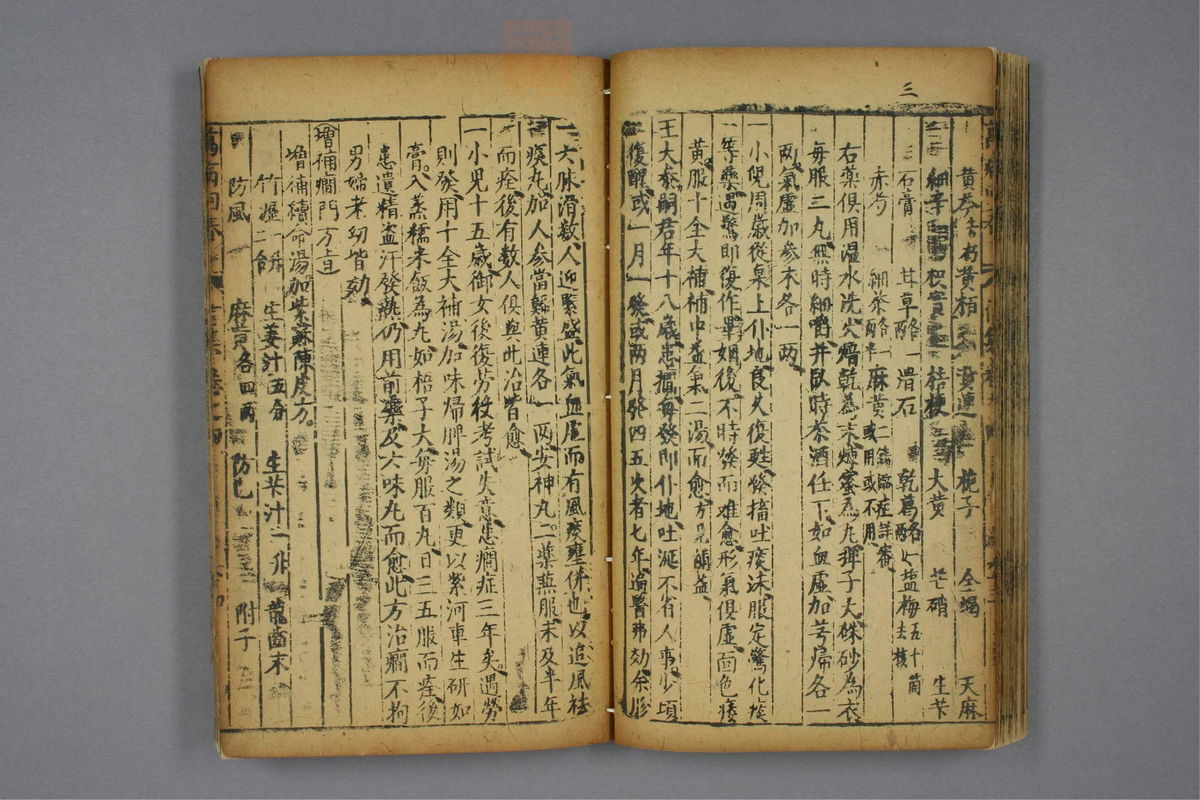 三
黄芩去朽 黄栢 黄連 梔子 全蝎 天麻
細辛 枳實 桔梗 大黄 芒硝 生芐
石膏 甘草 滑石 乾葛 塩梅五十箇去核
赤芍 細茶 麻黄 或用或不用 在詳審
右藥俱用温水洗火熸乾為末煉蜜為丸弹子大硃砂為衣
每服三丸無時細嚼并臥時茶酒任下如血虚加芎歸各一
两氣虚加参术各一两
一小児周歳從桌上仆地良久復甦發搐吐痰沫服定驚化痰
等藥遇驚即復作畢姻後不時發而难愈形氣俱虚面色痿
黄服十全大補補中益氣二湯而愈方見補益
王大参嗣君年十八歳患癎每發即仆地吐涎不省人事少頃
復醒或一月一發或两月 四五次者七年遍醫弗効余診
六脉滑数人迎緊盛此氣血虚而有風痰壅併也以追風祛
痰丸加人参當歸黄連各一两安神丸二藥兼服未及半年
而痊後有数人俱與此治皆愈
一小児十五歳御女後復劳役考試失意患癎症三年矣遇勞
則發用十全大補湯加味歸脾湯之類更以紫河車生研如
膏入蒸糯米飯為丸如梧子大每服百丸日三五服而痊後
患遺精盗汗發熱仍用前藥及六味丸而愈此方治癎不拘
男婦老幼皆効
增補癎門方
增補續命湯加紫蘇陳皮方
竹瀝一 二合 生姜汁五分 生芐汁一升 龍齒末
防風 麻黄各四两 防已 附子
萬病回春